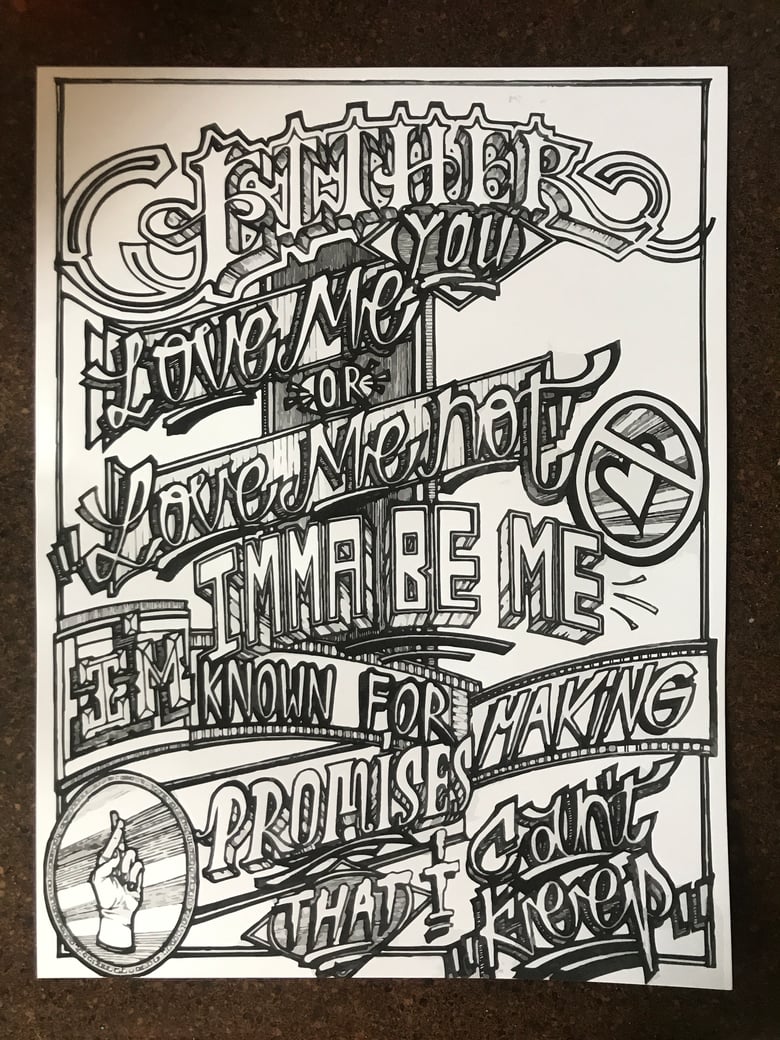 EITHER
YOU
Love Me
OR
"Love Me not"
IMMA BE ME
I'M KNOWN FOR MAKING
PROMISES
THAT I
"Can't
Keep"